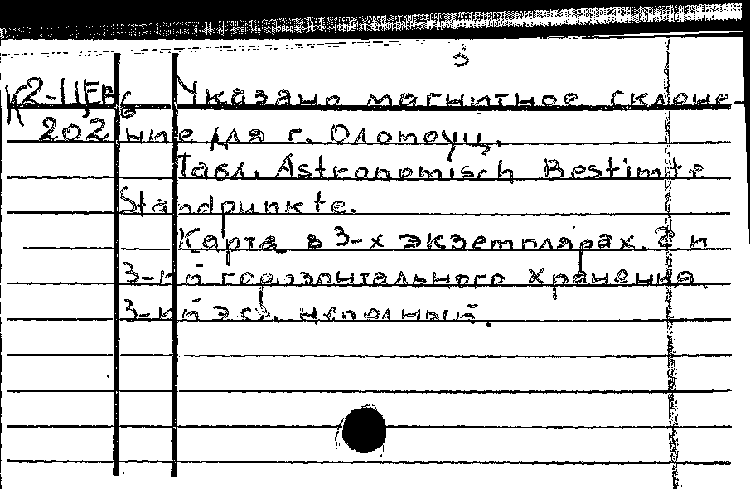 3
К2-IIЕв6 Указано магнитное склоне-
202 ние для г. Оломоуц.
Табл. Astronomisch Bestimte
Standpunkte.
Карта в 3-х экземплярах. 2 и
3-ий горизонтального хранения.
3-ий экз. неполный.